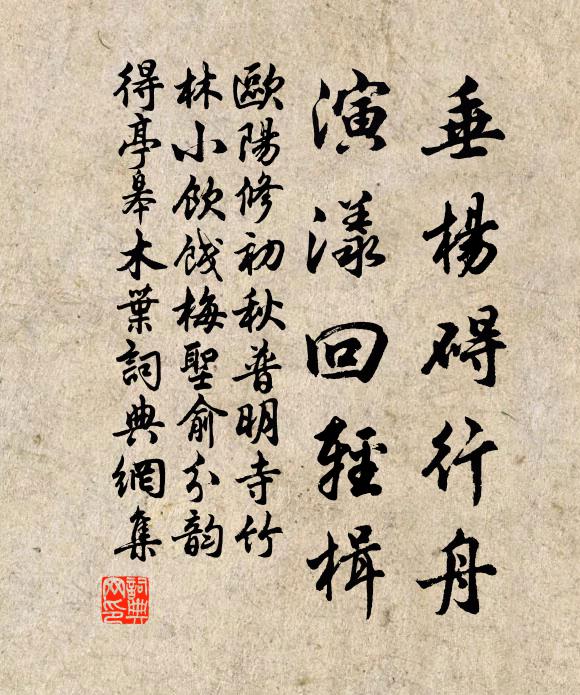 垂楊碍行舟
演漾回輕楫
歐陽修初秋普明寺竹
林小飲餞梅聖俞分韵
得亭皋木葉詞典網集
詞典
网印